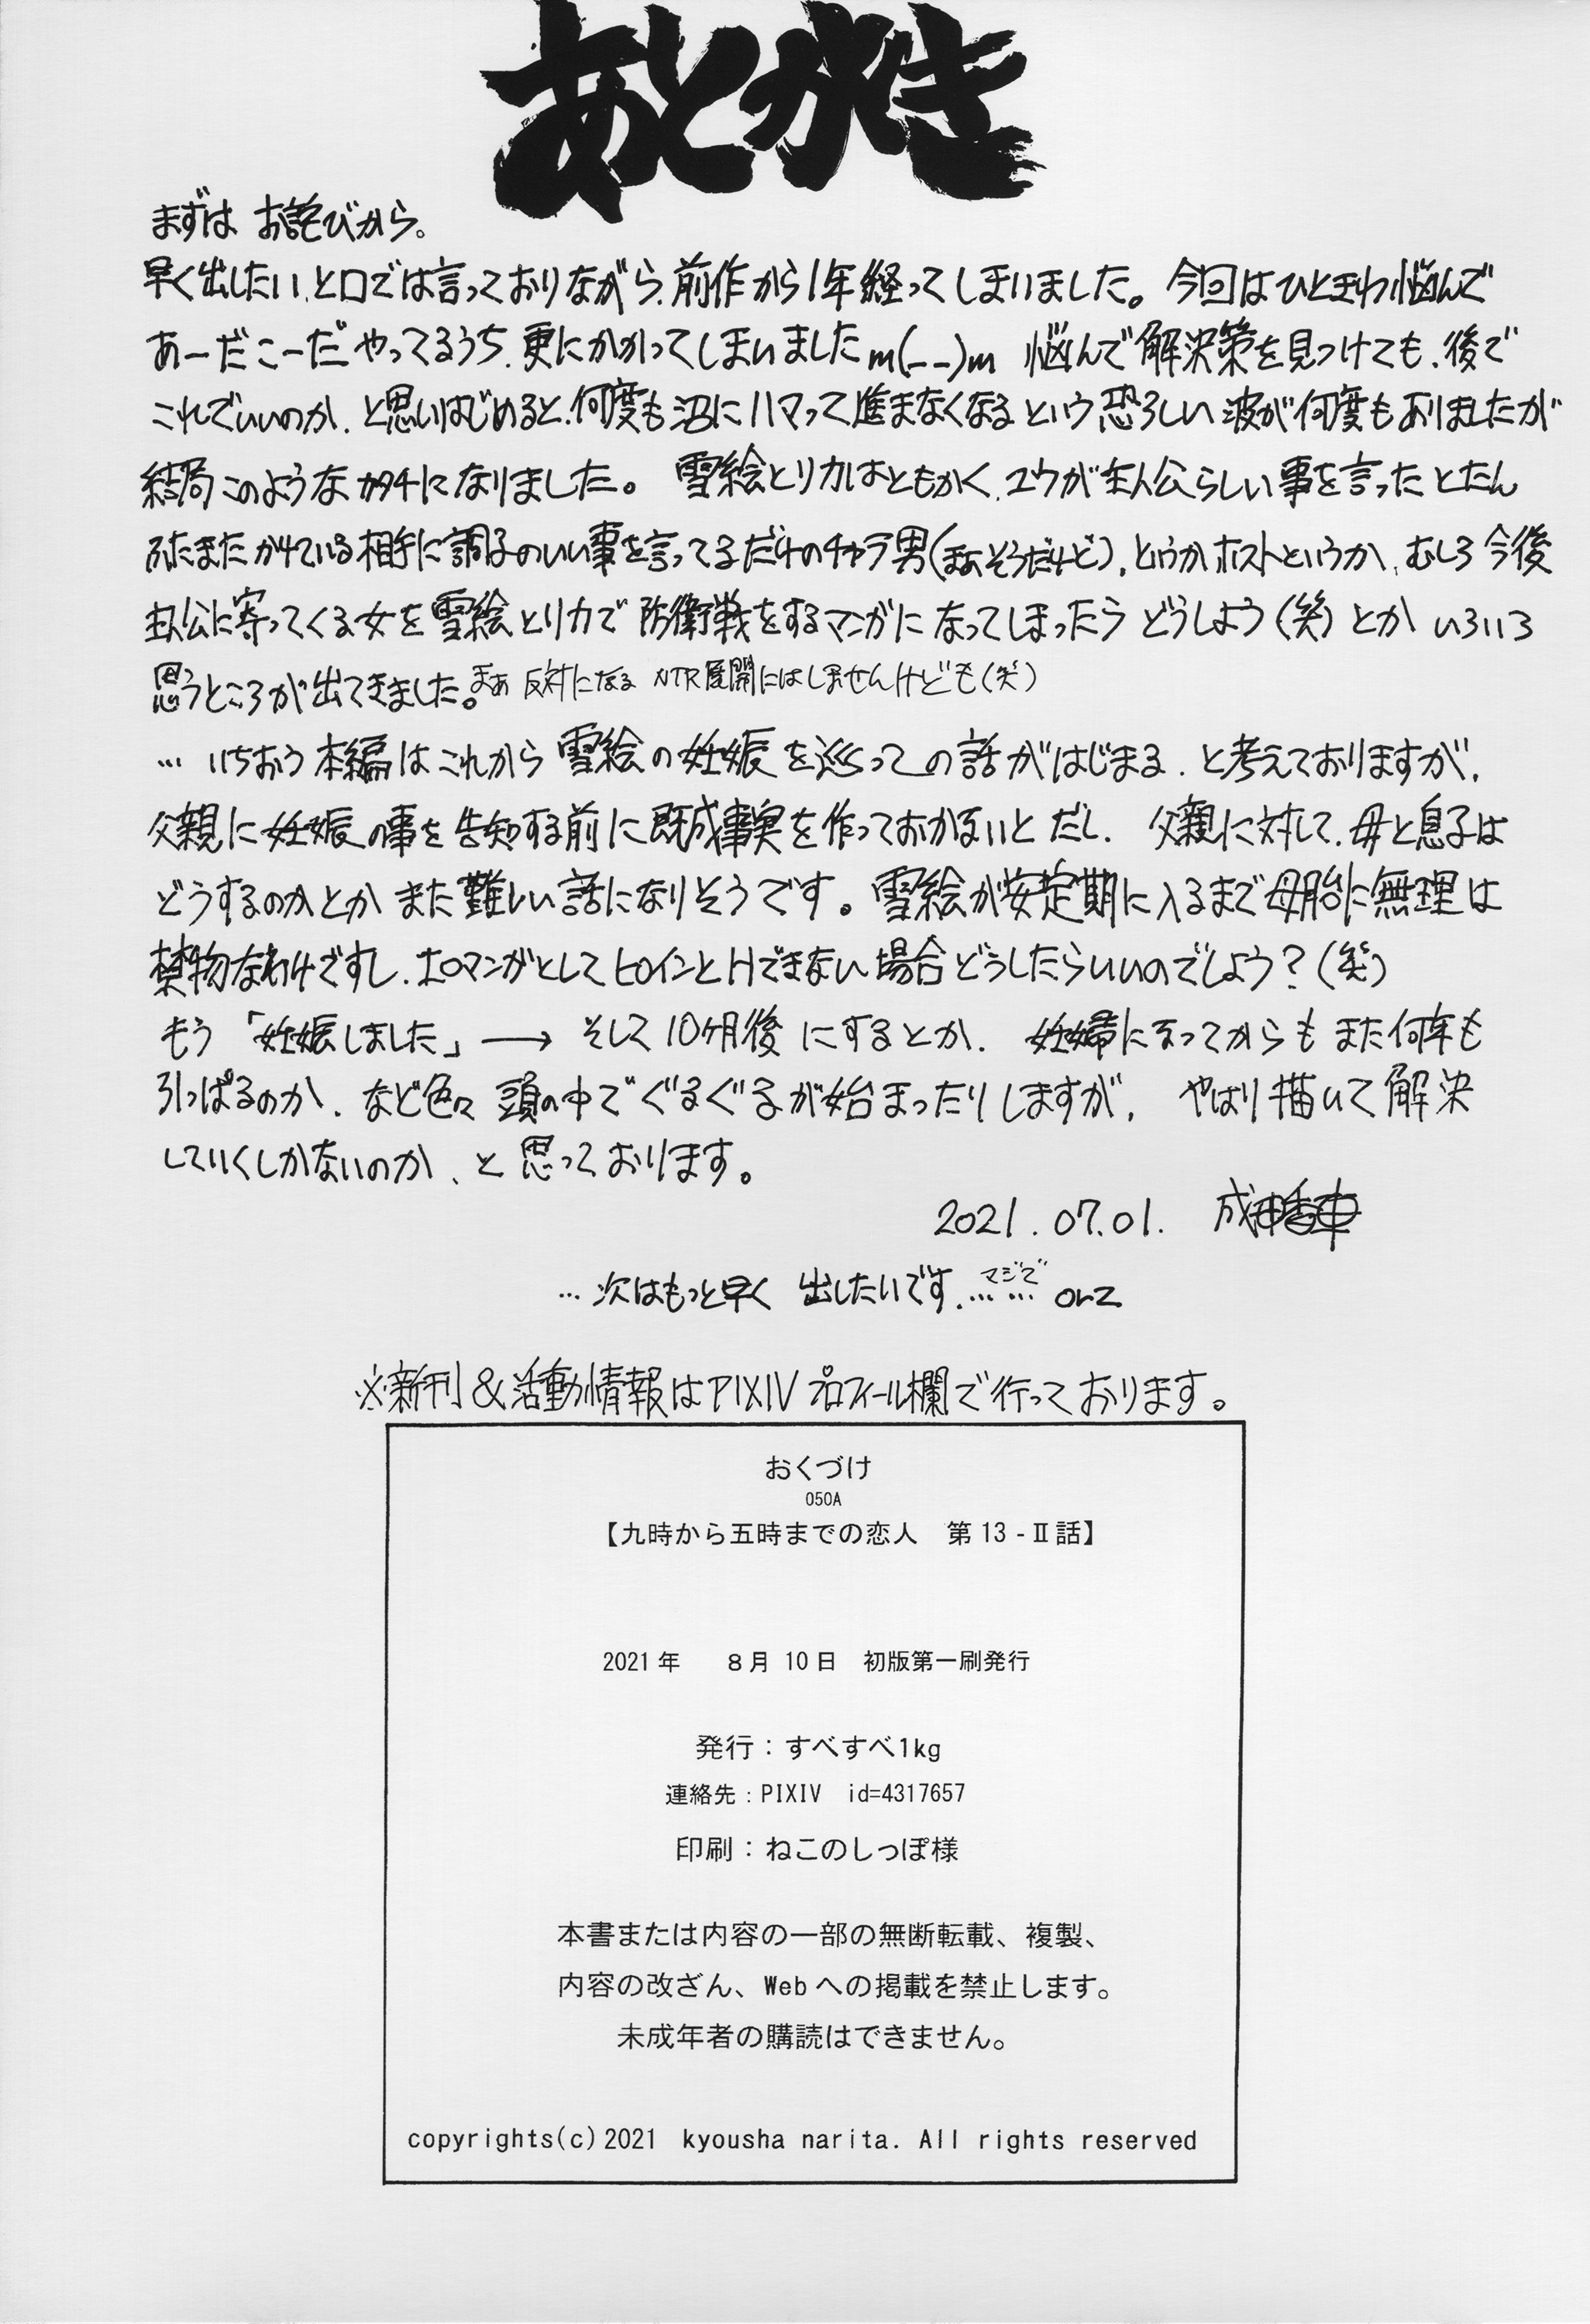 あとがき
まずは お詫びから。
早く出したい、と口では言っておりながら、前作から1年経ってしまいました。今回はひときわ悩んで
あーだこーだやってるうち、更にかかってしまいましたm(__)m 悩んで解決策を見つけても、後で
これでいいのか、と思いはじめると、何度も沼にハマって進まなくなるという恐ろしい波が何度もありましたが
結局このようなカタチになりました。 雪絵とリカはともかく、ユウが主人公らしい事を言ったとたん
ふたまたかけている相手に調子のいい事を言ってるだけのチャラ男(まあそうだけど)、というかホストというか、むしろ今後
主人公に寄ってくる女を雪絵とリカで防衛戦をするマンガになってしまったらどうしよう(笑)とか いろいろ
思うところが出てきました。まぁ 反対になる NTR展開にはしませんけども(笑)
… いちおう本編はこれから雪絵の妊娠を巡っての話がはじまる、と考えておりますが、
父親に妊娠の事を告知する前に既成事実を作っておかないとだし、 父親に対して、母と息子は
どうするのかとか また難しい話になりそうです。雪絵が安定期に入るまで母胎に無理は
禁物なわけですし、エロマンガとしてヒロインとHできない場合どうしたらいいのでしょう?(笑)
もう「妊娠しました」→ そして10ヶ月後 にするとか、 妊婦になってからも また何年も
引っぱるのか、など色々 頭の中でぐるぐるが始まったりしますが、 やはり描いて解決
していくしかないのか、と思っております。
2021.07.01. 成田香車
…次はもっと早く 出したいです……マジで orz
※新刊&活動情報はPIXIVプロフィール欄で行っております。
おくづけ
050A
【九時から五時までの恋人 第13-Ⅱ話】
2021年 8月10日 初版第一刷発行
発行:すべすべ1kg
連絡先:PIXIV id=4317657
印刷:ねこのしっぽ様
本書または内容の一部の無断転載、複製、
内容の改ざん、Webへの掲載を禁止します。
未成年者の購読はできません。
copyrights(c)2021 kyousha narita. All rights reserved